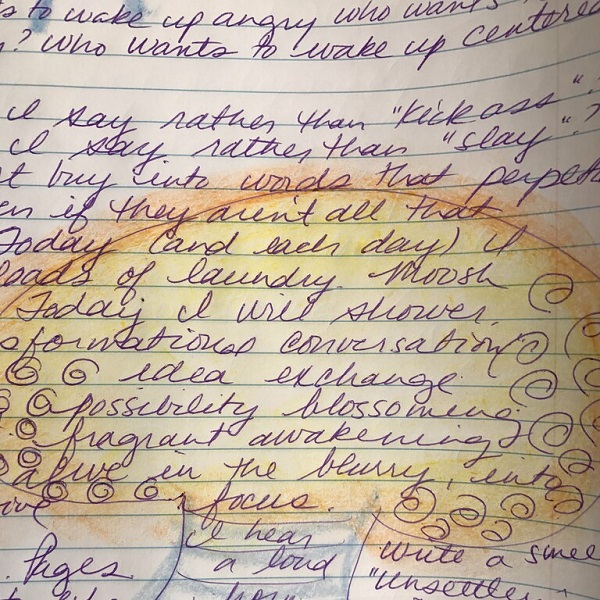 s to wake up angry who wants
? who wants to wake up centered
I say rather than "kick ass"?
I say rather than "slay"?
t buy into words that perpet
en if they aren't all that
Today (and each day) I
loads of laundry. Moosh
Today I will shower
sformational conversation
idea exchange
possibility blossoming
fragrant awakening
alive in the blurry, into
ive focus.
I hear
a loud
horn
Pages
write a smee
"Unsettle